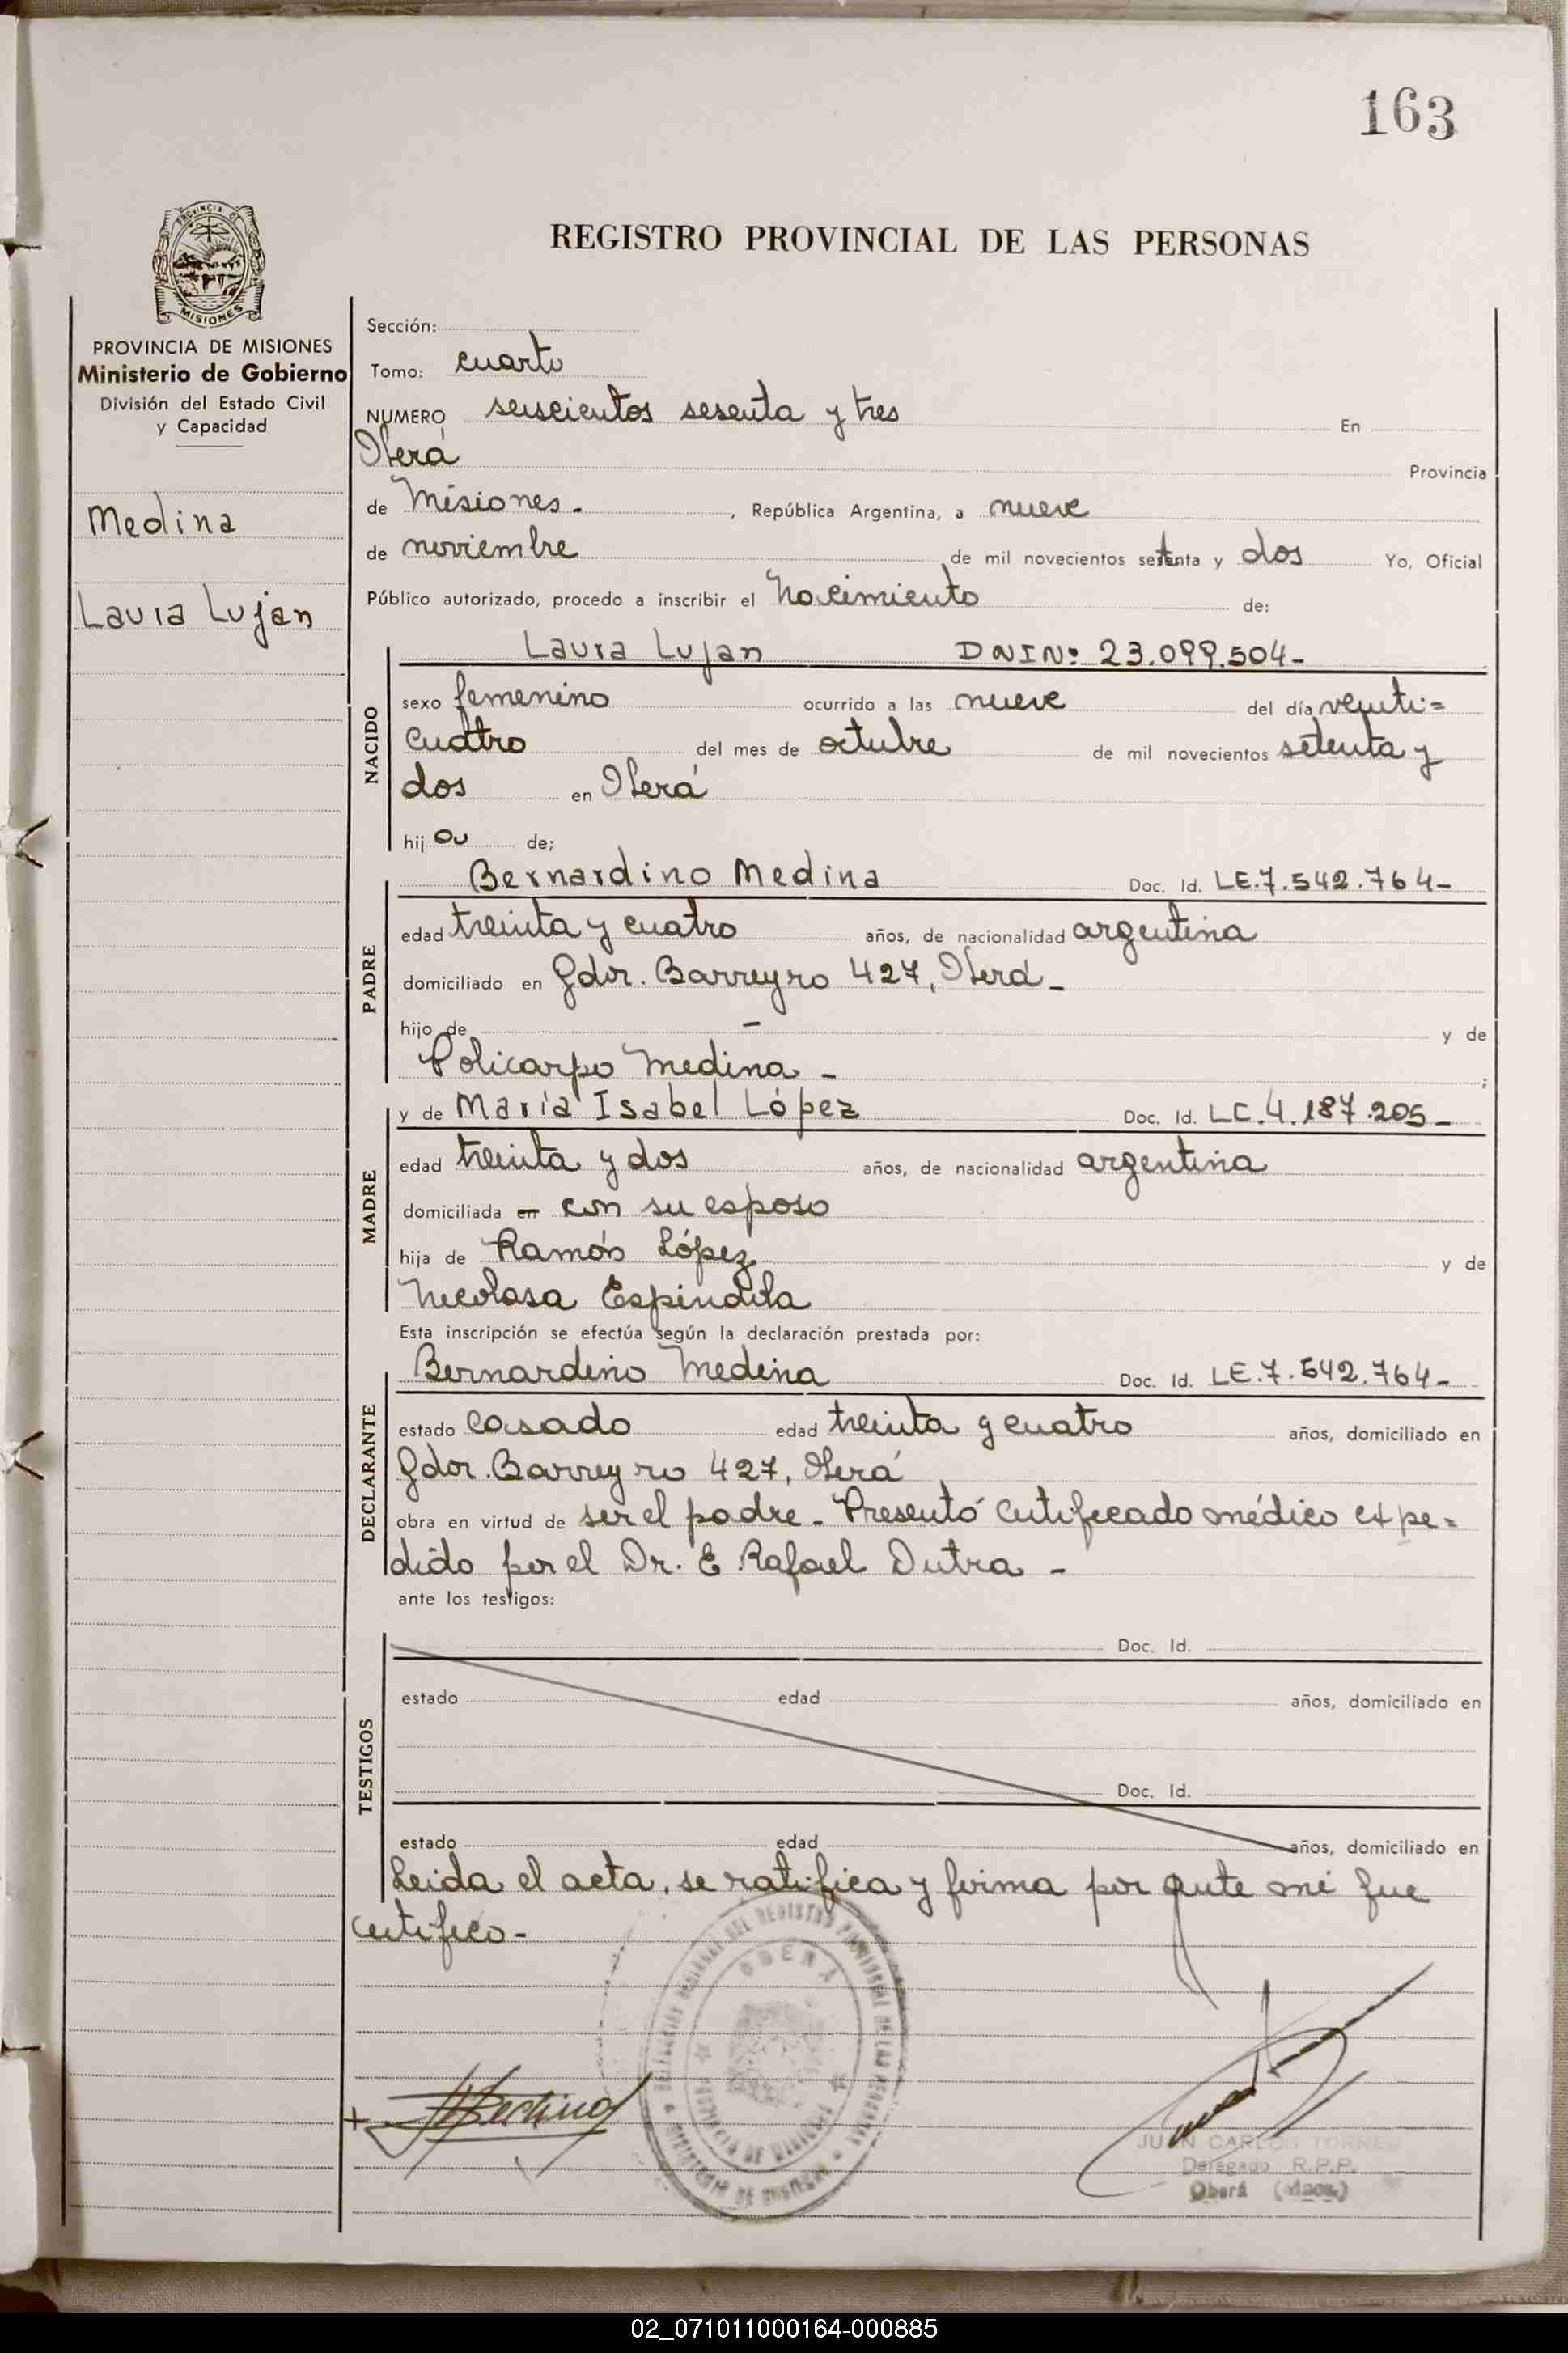 163
PROVINCIA DE
MISIONES
REGISTRO PROVINCIAL DE LAS PERSONAS
PROVINCIA DE MISIONES
Ministerio de Gobierno
División del Estado Civil
y Capacidad
Medina
Laura Lujan
Sección:
Tomo: cuarto
NUMERO seiscientos sesenta y tres En
Oberá Provincia
de Misiones - , República Argentina, a nueve
de noviembre de mil novecientos setenta y dos Yo, Oficial
Público autorizado, procedo a inscribir el Nacimiento de:
Laura Lujan DNI Nº 23.099.504-
NACIDO
sexo femenino ocurrido a las nueve del día veinti=
cuatro del mes de octubre de mil novecientos setenta y
dos en Oberá
hija de;
PADRE
Bernardino Medina Doc. Id. LE.7.542.764-
edad treinta y cuatro años, de nacionalidad argentina
domiciliado en Gdor. Barreyro 427, Oberá -
hijo de - y de
Policarpo Medina - ;
MADRE
y de María Isabel López Doc. Id. LC.4.187.205-
edad treinta y dos años, de nacionalidad argentina
domiciliada en con su esposo
hija de Ramón López y de
Nicolasa Espindola
Esta inscripción se efectúa según la declaración prestada por:
DECLARANTE
Bernardino Medina Doc. Id. LE.7.542.764-
estado casado edad treinta y cuatro años, domiciliado en
Gdor. Barreyro 427, Oberá
obra en virtud de ser el padre - Presentó certificado médico expe=
dido por el Dr. E. Rafael Dutra -
ante los testigos:
TESTIGOS
Doc. Id.
estado edad años, domiciliado en
Doc. Id.
estado edad años, domiciliado en
Leida el acta, se ratifica y firma por ante mi que
certifico -
OBERA
PROVINCIA DE MISIONES
JUAN CARLOS TORRES
Delegado R.P.P.
Oberá (Mnes.)
02_071011000164-000885